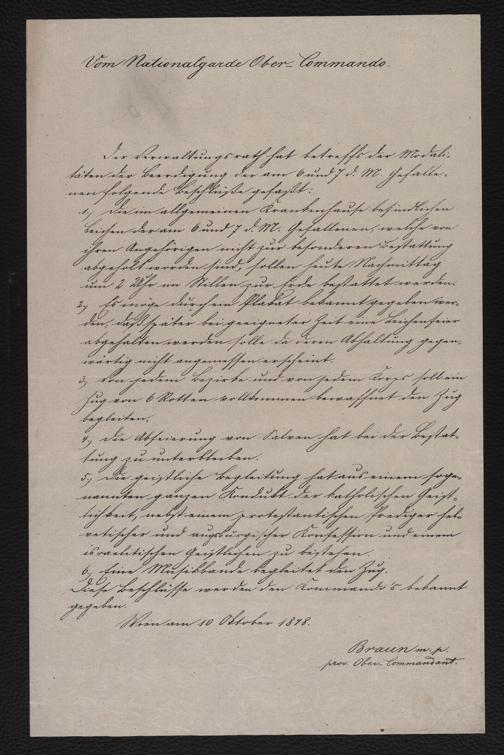 Vom Nationalgarde Ober-Commando.
Der Verwaltungsrath hat betreffs der Modali-
täten der Beerdigung der am 6 und 7 d. M. Gefalle-
nen folgende Beschlüsse gefaßt:
1., Die im allgemeinen Krankenhause befindlichen
Leichen der am 6 und 7 d. M. Gefallenen, welche von
ihren Angehörigen nicht zur besonderen Bestattung
abgeholt worden sind, sollen heute Nachmittag
um 2 Uhr im Stillen zur Erde bestattet werden.
2., Es möge durch ein Plakat bekannt gegeben wer-
den, daß später bei geeigneter Zeit eine Leichenfeier
abgehalten werden solle da deren Abhaltung gegen-
wärtig nicht angemessen erscheint.
3., Von jedem Bezirke und von jedem Korps soll ein
Zug von 6 Rotten vollkommen bewaffnet den Zug
begleiten.
4., Die Abfeierung von Salven hat bei der Bestat-
tung zu unterbleiben.
5., Die geistliche Begleitung hat aus einem soge-
nannten ganzen Kondukt der katholischen Geist-
lichkeit, nebst einem protestantischen Prediger hel-
vetischer und augsburgischer Konfession und einem
israelitischen Geistlichen zu bestehen.
6., Eine Musikbande begleitet den Zug.
Diese Beschlüsse werden den Kommando's bekannt
gegeben.
Wien am 10 Oktober 1848.
Braun m. p.
prov. Ober-Commandant.